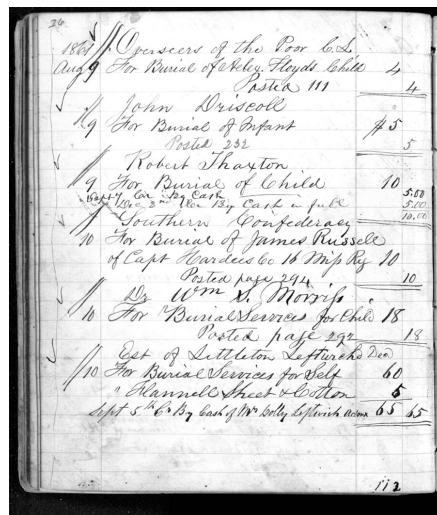 26
1861 Overseers of the Poor C.L
Aug 9 For Burial of Floyds Child 4
Posted 111 4
John Driscoll
9 For Burial of Infant $5
Posted 232 5
Robert Thaxton
9 For Burial of Child 10
Sept 7 By Cash 5.00
By Cash in full 5.00
10.00
Southern Confederacy
10 For Burial of James Russell
of Capt Hardees Co 16 Miss Reg 10
Posted page 294 10
Dr Wm S. Morriss
10 For Burial Services for Child 18
Posted page 292 18
Est of Littleton Leftwich Decd
10 For Burial Services for Self 60
" Flannell Sheet & Cotton 5
Sept 5th Cr By Cash of Mrs Leftwich Admx 65 65
112